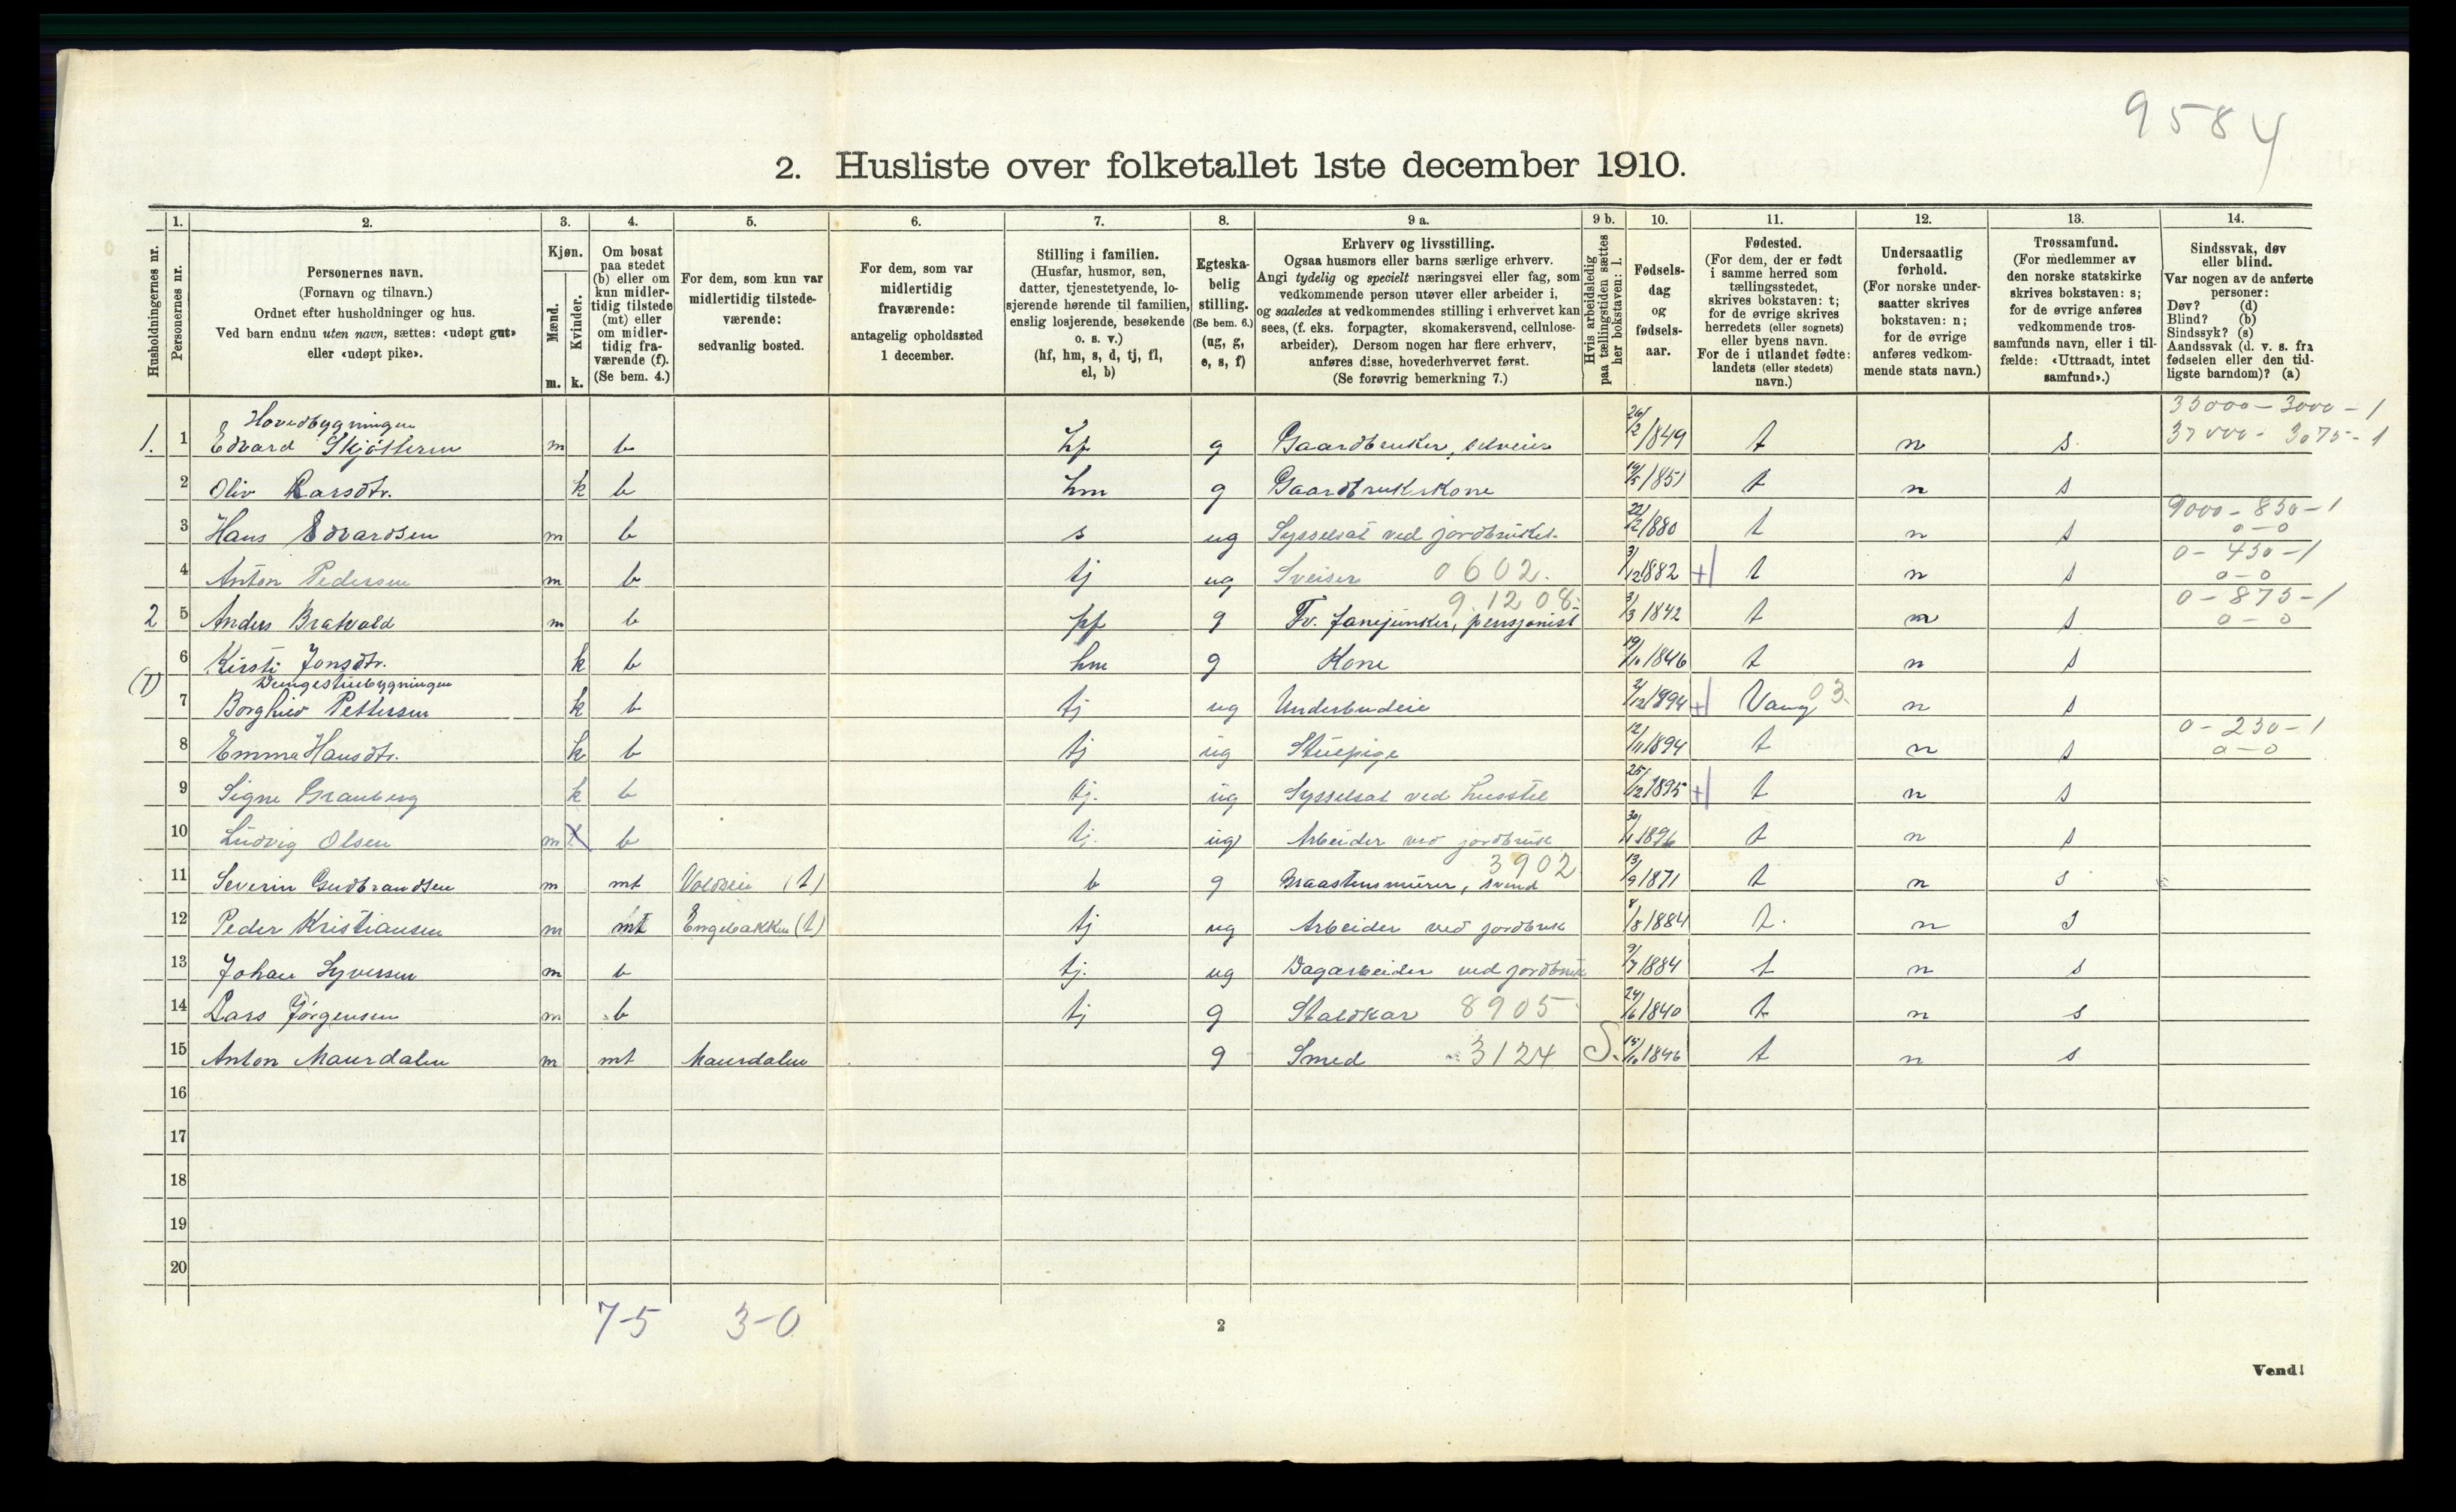 9584
2. Husliste over folketallet 1ste december 1910.
1. 2. 3. 4. 5. 6. 7. 8. 9 a. 9 b. 10. 11. 12. 13. 14.
Husholdningernes nr.
Personernes nr.
Personernes navn.
(Fornavn og tilnavn.)
Ordnet efter husholdninger og hus.
Ved barn endnu uten navn, sættes: «udøpt gut»
eller «udøpt pike».
Kjøn.
Mænd.
Kvinder.
m. k.
Om bosat
paa stedet
(b) eller om
kun midler-
tidig tilstede
(mt) eller
om midler-
tidig fra-
værende (f).
(Se bem. 4.)
For dem, som kun var
midlertidig tilstede-
værende:
sedvanlig bosted.
For dem, som var
midlertidig
fraværende:
antagelig opholdssted
1 december.
Stilling i familien.
(Husfar, husmor, søn,
datter, tjenestetyende, lo-
sjerende hørende til familien,
enslig losjerende, besøkende
o. s. v.)
(hf, hm, s, d, tj, fl,
el, b)
Egteska-
belig
stilling.
(Se bem. 6.)
(ug, g,
e, s, f)
Erhverv og livsstilling.
Ogsaa husmors eller barns særlige erhverv.
Angi tydelig og specielt næringsvei eller fag, som
vedkommende person utøver eller arbeider i,
og saaledes at vedkommendes stilling i erhvervet kan
sees, (f. eks. forpagter, skomakersvend, cellulose-
arbeider). Dersom nogen har flere erhverv,
anføres disse, hovederhvervet først.
(Se forøvrig bemerkning 7.)
Hvis arbeidsledig
paa tællingstiden sættes
her bokstaven: l.
Fødsels-
dag
og
fødsels-
aar.
Fødested.
(For dem, der er født
i samme herred som
tællingsstedet,
skrives bokstaven: t;
for de øvrige skrives
herredets (eller sognets)
eller byens navn.
For de i utlandet fødte:
landets (eller stedets)
navn.)
Undersaatlig
forhold.
(For norske under-
saatter skrives
bokstaven: n;
for de øvrige
anføres vedkom-
mende stats navn.)
Trossamfund.
(For medlemmer av
den norske statskirke
skrives bokstaven: s;
for de øvrige anføres
vedkommende tros-
samfunds navn, eller i til-
fælde: «Uttraadt, intet
samfund».)
Sindssvak, døv
eller blind.
Var nogen av de anførte
personer:
Døv? (d)
Blind? (b)
Sindssyk? (s)
Aandssvak (d. v. s. fra
fødselen eller den tid-
ligste barndom)? (a)
Hovedbygningen 33000-3000-1
1. 1 Edvard Skjötteren m b hf g Gaardbruker, selveier 26/2 1849 t n s 37000-3075-1
2 Oliv Larsdtr. k b hm g Gaardbrukskone 19/5 1851 t n s
3 Hans Edvardsen m b s ug Sysselsat ved jordbruket 22/12 1880 t n s 9000-850-1 0-0
4 Anton Pedersen m b tj ug Sveiser 0602. 3/12 1882 + t n s 0-450-1 0-0
2 5 Anders Bratvold m b hf g Fv. fanejunker, pensjonist 9.1208. 3/3 1842 t n s 0-875-1 0-0
6 Kirsti Jonsdtr. k b hm g Kone 19/10 1846 t n s
(1) Drengestuebygningen
7 Borghild Pettersen k b tj ug Underbudeie 2/12 1894 + Vang 03. n s
8 Emma Hansdtr. k b tj ug Stuepige 12/11 1894 t n s 0-230-1 0-0
9 Signe Granberg k b tj. ug Sysselsat ved husstel 25/12 1895 + t n s
10 Ludvig Olsen m b tj. ug Arbeider ved jordbruk 30/11 1896 t n s
11 Severin Gudbrandsen m mt Voldeie (t) b g Graastensmurer, svend 3902 13/9 1871 t n s
12 Peder Kristiansen m mt Engebakken (t) tj ug Arbeider ved jordbruk 8/8 1884 t. n s
13 Johan Syversen m b tj. ug Dagarbeider ved jordbruk 9/7 1884 t n s
14 Lars Jörgensen m b tj g Staldkar 8905 24/6 1840 t n s
15 Anton Maurdalen m mt Maurdalen g Smed 3124 S. 15/10 1846 t n s
16
17
18
19
20
7-5 3-0
2
Vend!